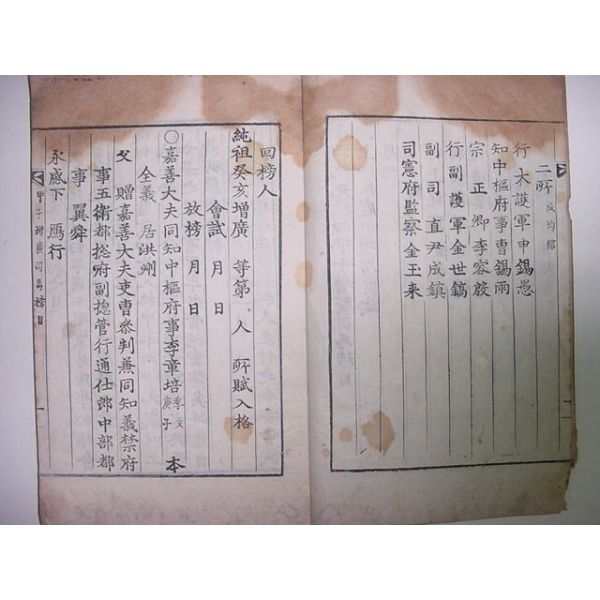 二所 成均館
行大護軍申錫愚
知中樞府事曹錫雨
宗正卿李容殷
行副護軍金世鎬
副司直尹成鎮
司憲府監察金玉来
回榜人
純祖癸亥增廣 等第 人 所賦入格
會試 月 日
放榜 月 日
○嘉善大夫同知中樞府事李章培 季文 庚子 本
全義 居洪州
父 贈嘉善大夫吏曹參判兼同知義禁府
事五衛都捴府副捴管行通仕郎中部都
事 翼舜
永感下 鴈行
甲子增廣司馬榜目
一